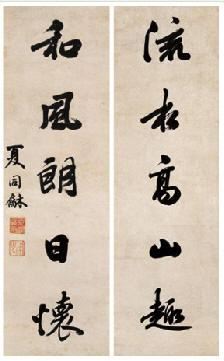 流水高山趣
和風朗日懷
夏同龢